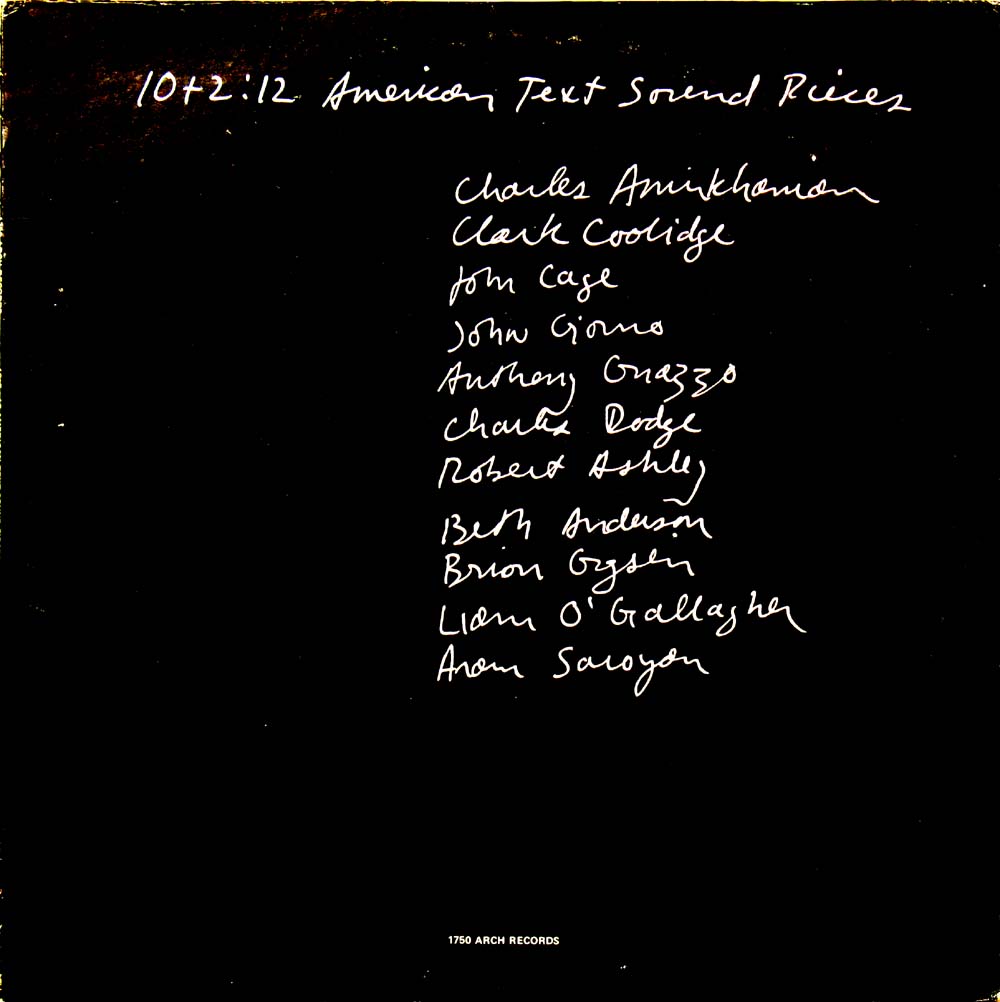 10+2:12 American Text Sound Pieces
Charles Amirkhanian
Clark Coolidge
John Cage
John Giorno
Anthony Gnazzo
Charles Dodge
Robert Ashley
Beth Anderson
Brion Gysin
Liam O'Gallagher
Aram Saroyan
1750 ARCH RECORDS